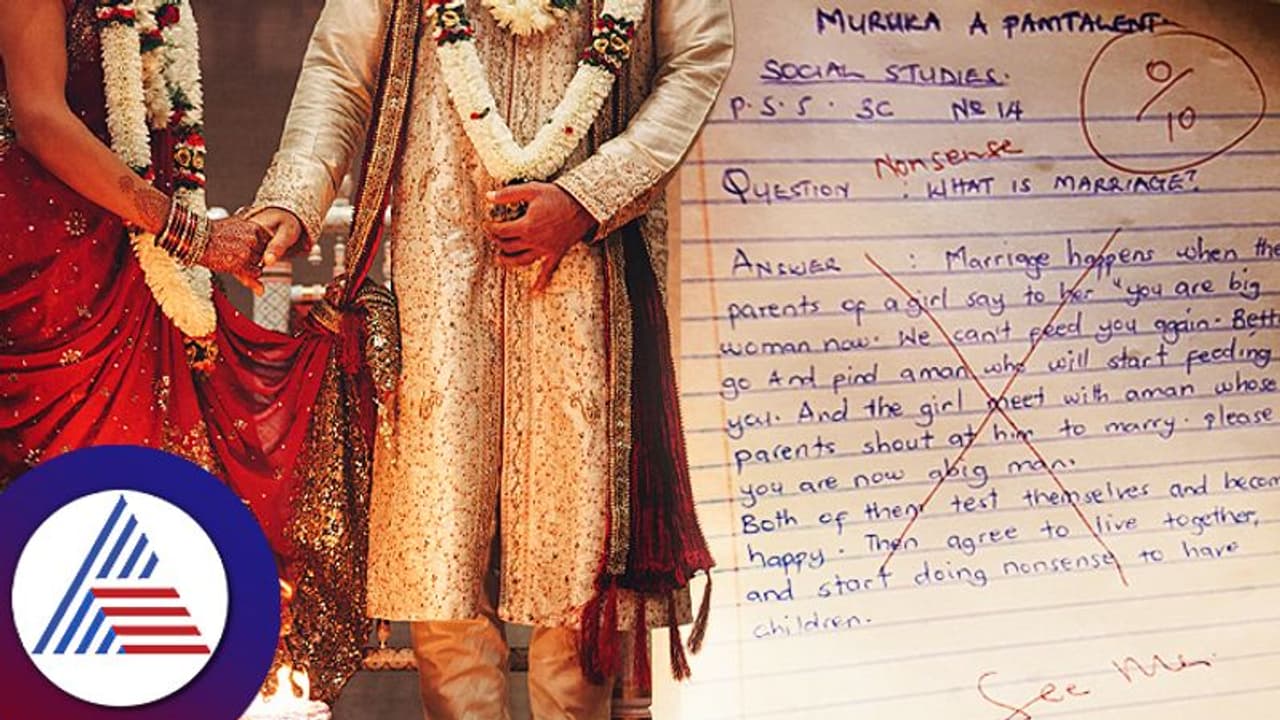 MURUKA A PAMTALENT
SOCIAL STUDIES.
P.S.S. 3C No 14
0/10
Nonsense
QUESTION : WHAT IS MARRIAGE?
ANSWER : Marriage happens when the
parents of a girl say to her "you are big
woman now. We can't feed you again. Bett
go And find aman who will start feeding
you. And the girl meet with aman whose
parents shout at him to marry. please
you are now abig man.
Both of them test themselves and becom
happy. Then agree to live together,
and start doing nonsense to have
children.
See Me.